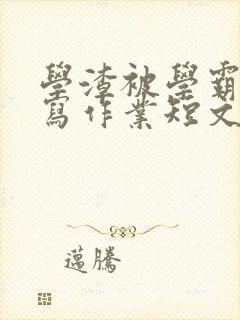 學渣被學霸
寫作業短文
邁騰